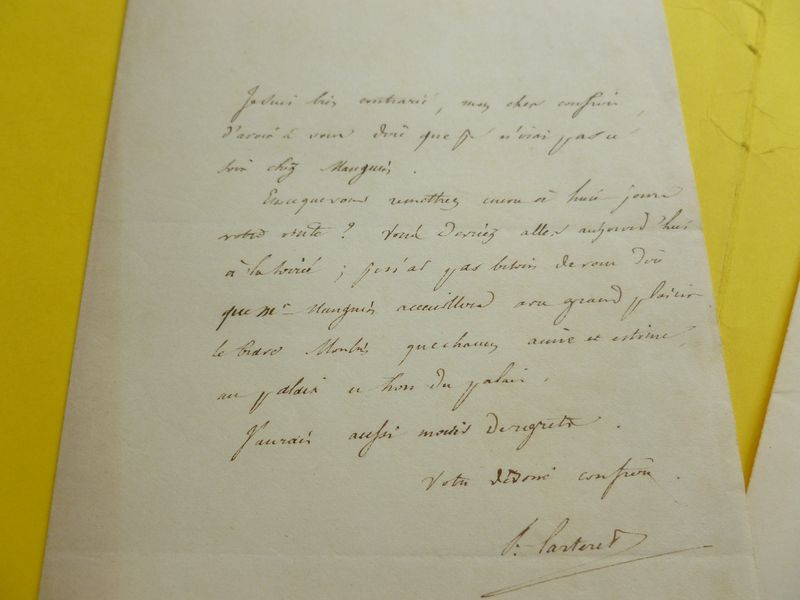 Je suis bien contrarié, mon cher confrère,
d'avoir à vous dire que je n'irai pas ce
soir chez Mauguin.
Est-ce que vous remettrez encore à huit jours
votre visite ? Vous devriez aller aujourd'hui
à la soirée ; je n'ai pas besoin de vous dire
que Mr Mauguin accueillera avec grand plaisir
le brave que chacun aime et estime,
au palais et hors du palais.
J'aurais aussi moins de regrets.
Votre dévoué confrère.